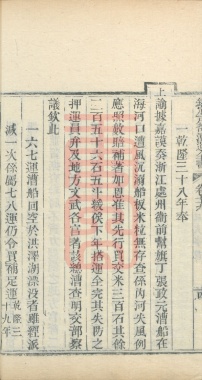 一乾隆三十八年奉
上諭據嘉謨奏浙江處州衛前幫旗丁張政元漕船在
海河口遭風沉溺船板米粒無存查係內河失風例
應照數賠補著加恩准其先行買交米三百石其餘
二百五十六石五斗統俟下年搭運全完其失防之
押運員弁及地方文武各官著該總漕查明交部察
議欽此
一六七運漕船回空於洪澤湖漂沒者雖經派
減一次係屬七八運仍令買補足運乾隆三十九年